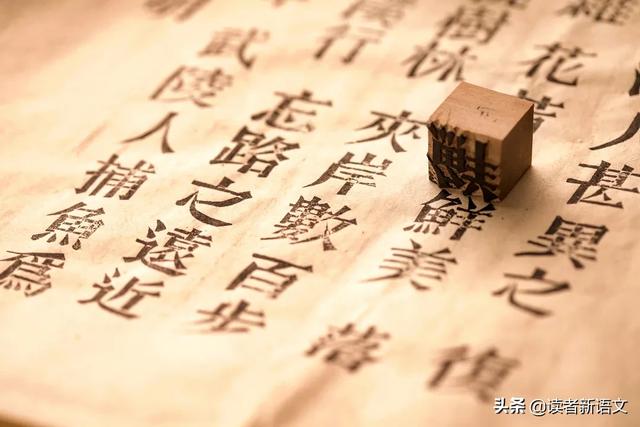 武陵人捕魚為
溪行忘路之遠近
樹林夾岸數百步
雜花草鮮美落
人甚異之復
头条 @读者新语文